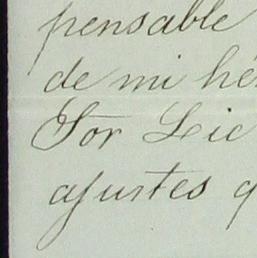 pensable
de mi hé
Sor Lic
ajustes q